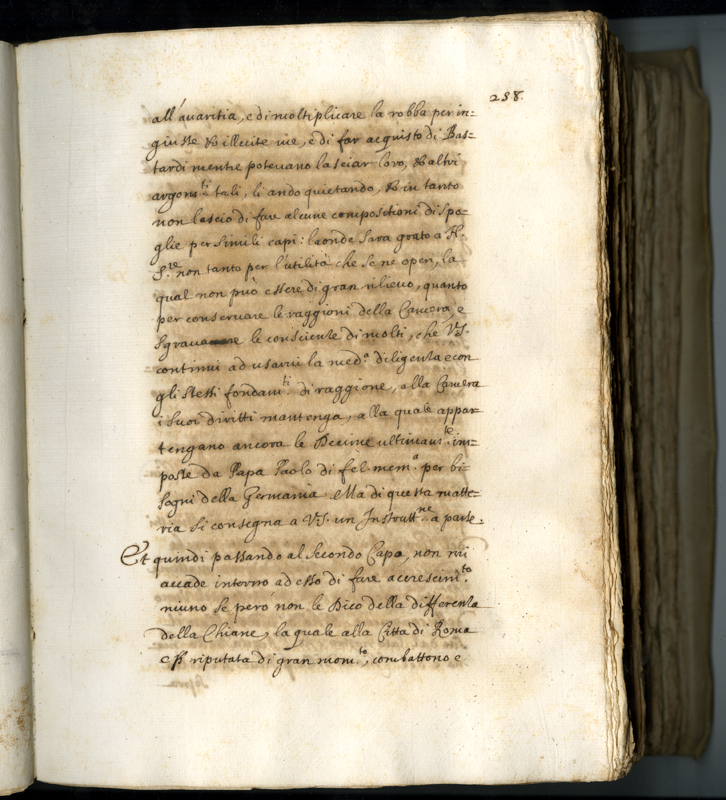 238.
all'auaritia, e di moltiplicare la robba per in=
giuste & illecite uie, e di far acquisto di Bas=
tardi mentre poteuano lasciar loro, & altri
argom.ti tali, li ando quietando, & in tanto
non lascio di fare alcune compositioni di spo=
glie per simili capi: laonde sara grato a N.
S.re non tanto per l'utilità che se ne operi, la
qual non può essere di gran rilieuo, quanto
per conseruare le raggioni della Camera, e
sgrauare le conscientie di molti, che V.S.
continui ad usarui la med.a diligenta e con
gli stessi fondam.ti di raggione, alla Camera
i suoi diritti mantenga, alla quale appar=
tengano ancora le Decime ultimam.te im=
poste da Papa Paolo di fel. mem.a per bi=
sogni della Germania. Ma di questa matte=
ria si consegna a V.S. un Instrutt.ne a parte.
Et quindi passando al secondo Capo, non mi
accade intorno ad esso di fare accrescim.to
niuno se però non le Dico della differenta
della Chiane, la quale alla Citta di Roma
è riputata di gran mom.to, combattono e
sopra